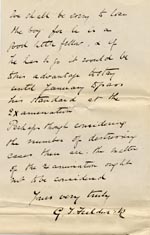 We shall be sorry to lose
the boy for he is a
good little fellow, & if
he has to go it would be
to his advantage to stay
until January & pass
his standard at the
Examination
Perhaps though considering
the number of destroying
cases there are, the matter
of the Examination ought
not to be considered
Yours very truly
G J